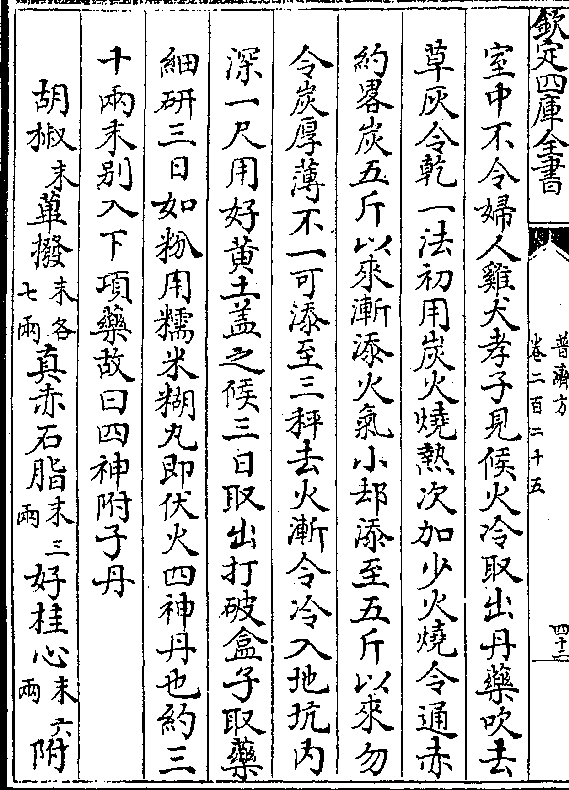 欽定四庫全書
普濟方
卷二百二十五
室中不令婦人雞犬孝子見候火冷取出丹藥吹去
草灰令乾一法初用炭火燒熱次加少火燒令通赤
約畧炭五斤以來漸添火氣小却添至五斤以來勿
令炭厚薄不一可添至三秤去火漸令冷入地坑內
深一尺用好黄土盖之候三日取出打破盒子取藥
細研三日如粉用糯米糊丸即伏火四神丹也約三
十兩末别入下項藥故曰四神附子丹
胡椒末蓽撥末各七兩真赤石脂末三兩好桂心末六兩附